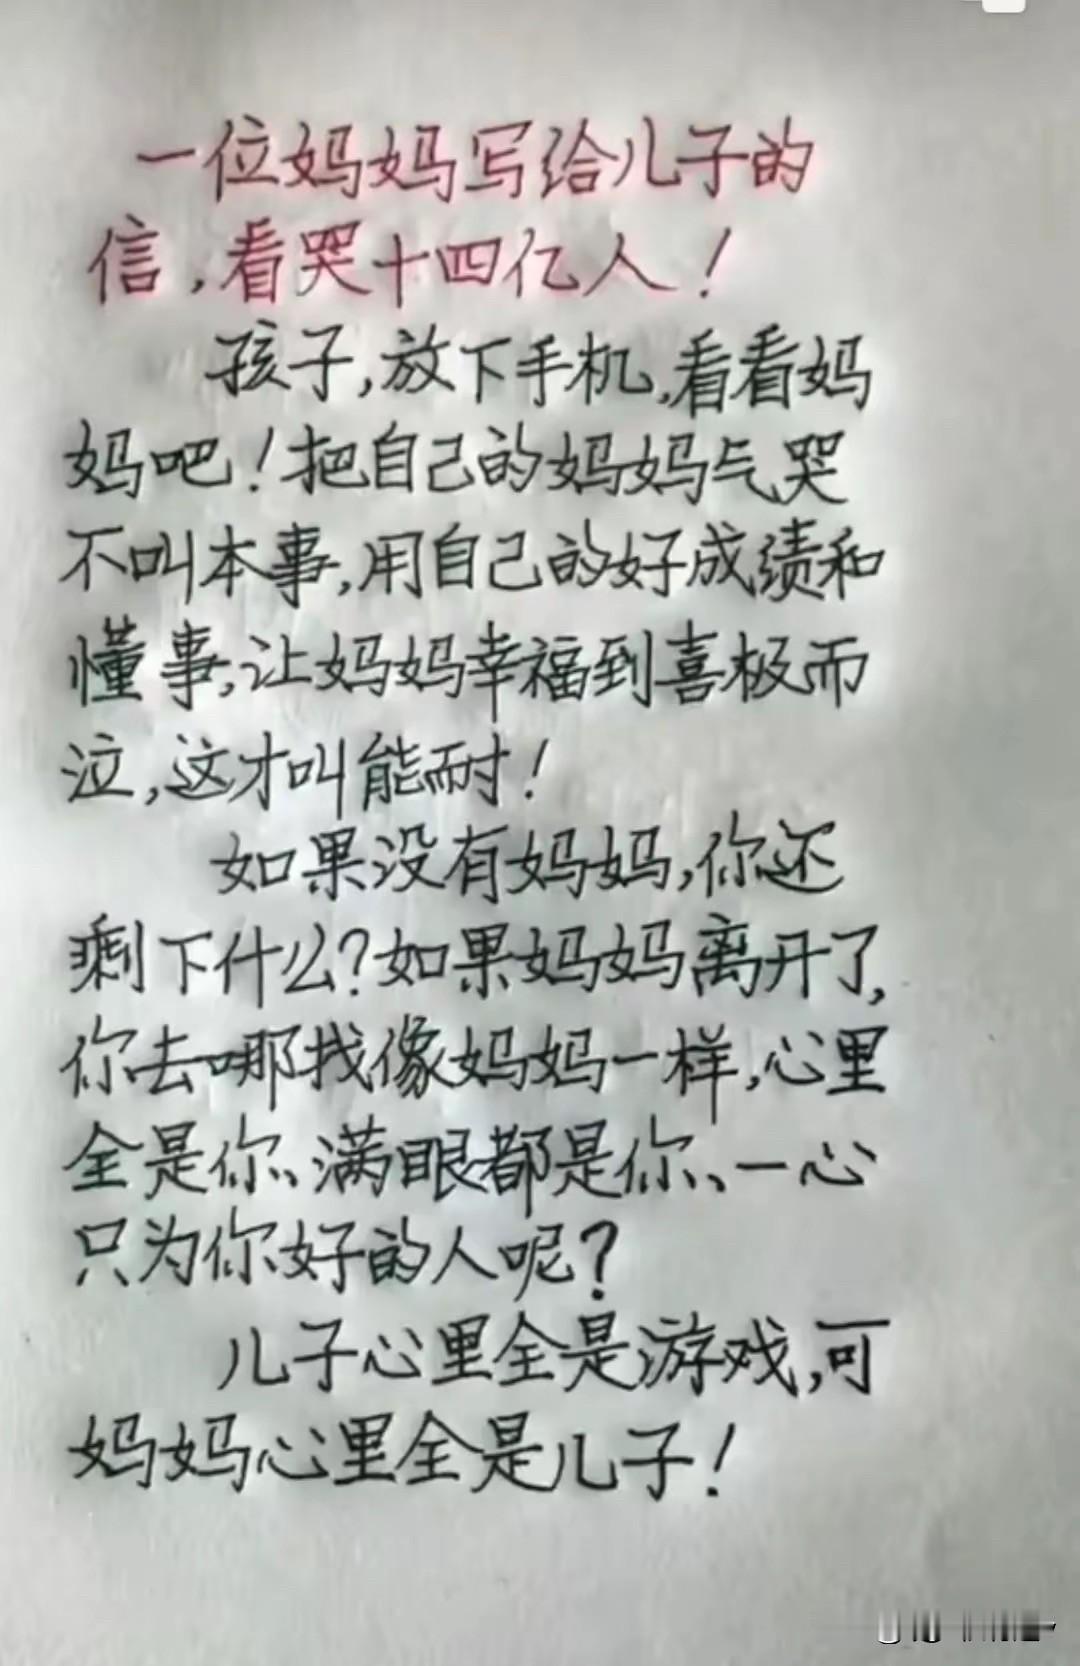 一位妈妈写给儿子的
信,看哭十四亿人!
孩子,放下手机,看看妈
妈吧!把自己的妈妈气哭
不叫本事,用自己的好成绩和
懂事,让妈妈幸福到喜极而
泣,这才叫能耐!
如果没有妈妈,你还
剩下什么?如果妈妈离开了,
你去哪找像妈妈一样,心里
全是你、满眼都是你、一心
只为你好的人呢?
儿子心里全是游戏,可
妈妈心里全是儿子!